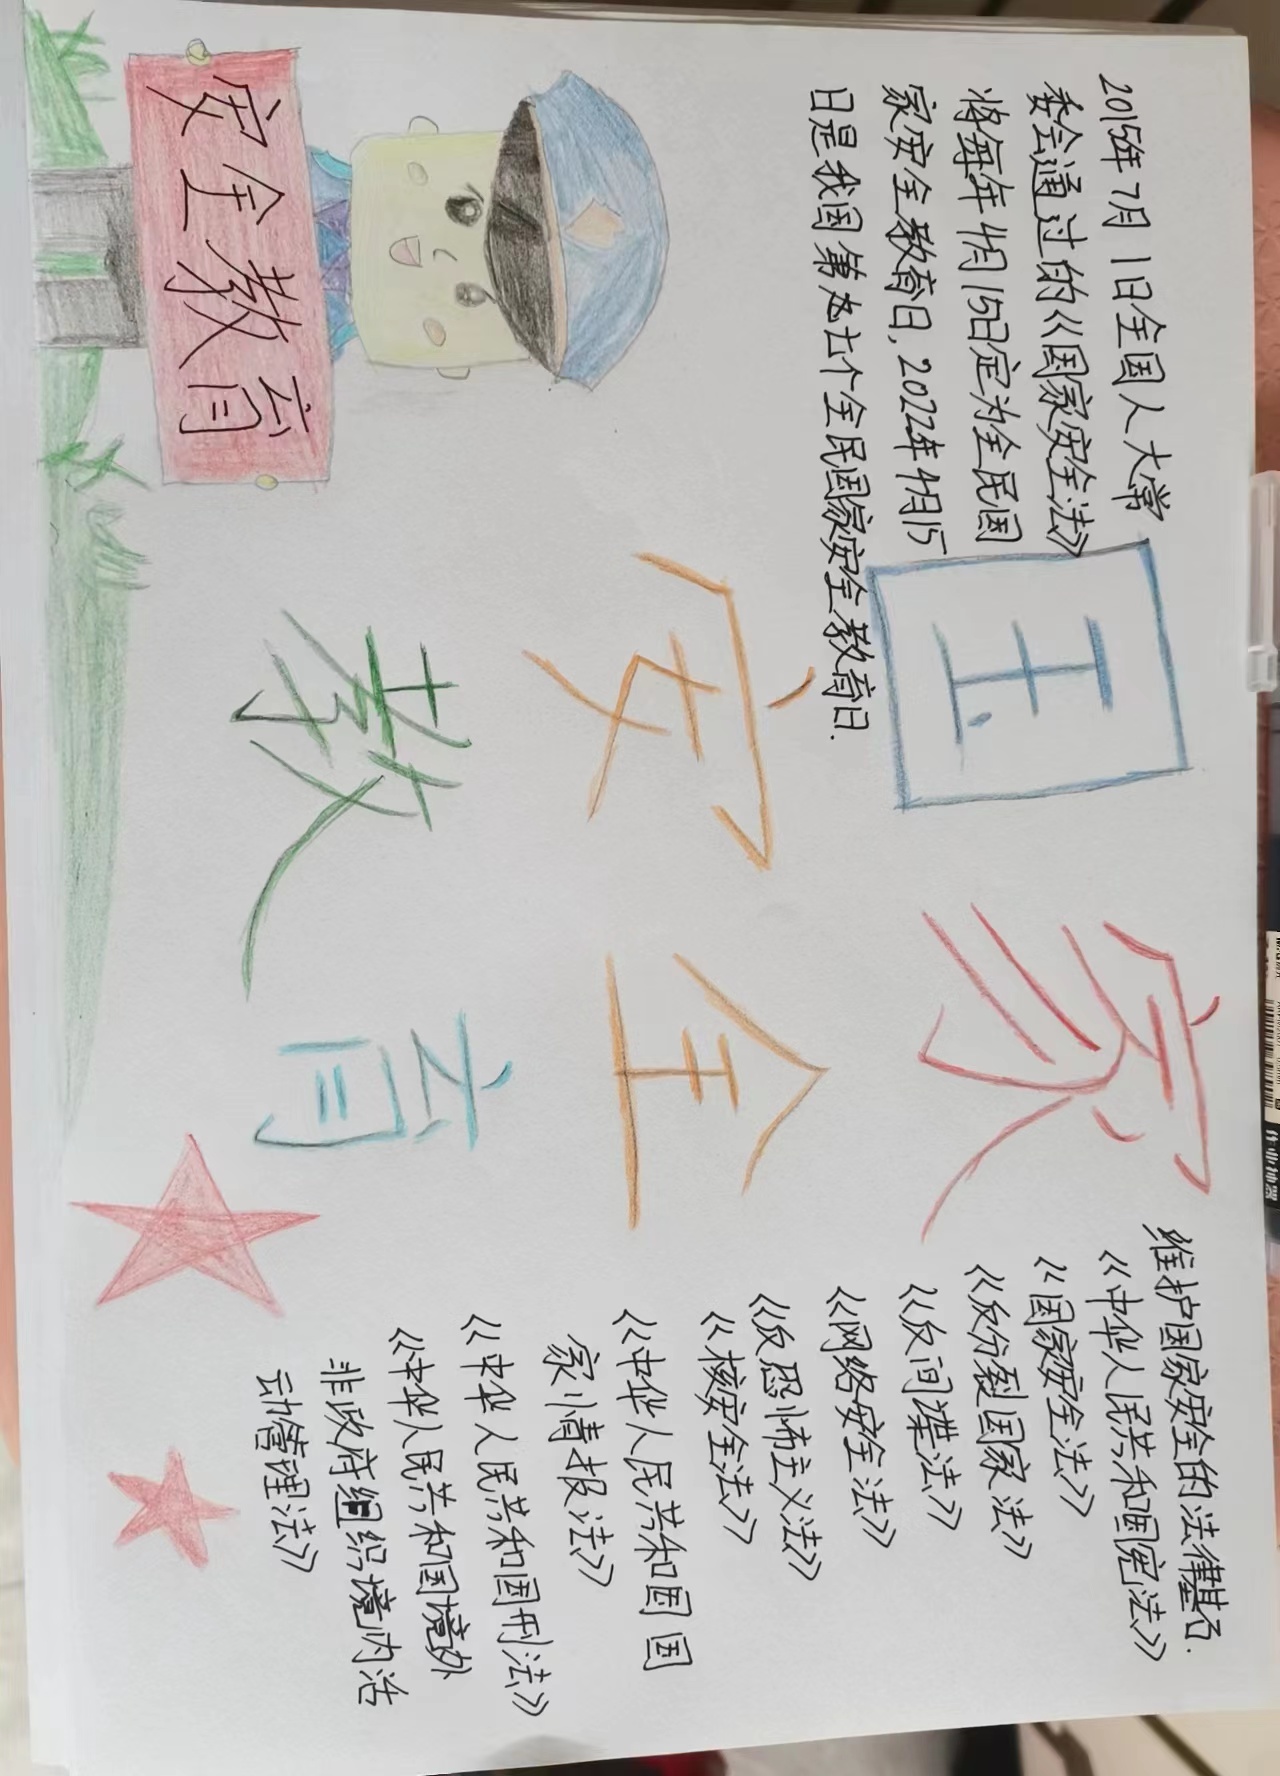 2015年7月1日全国人大常
委会通过的《国家安全法》
将每年4月15日定为全民国
家安全教育日,2022年4月15
日是我国第七个全民国家安全教育日.
国家
安全
教育
安全教育
维护国家安全的法律基石.
《中华人民共和国宪法》
《国家安全法》
《反分裂国家法》
《反间谍法》
《网络安全法》
《反恐怖主义法》
《核安全法》
《中华人民共和国国
家情报法》
《中华人民共和国刑法》
《中华人民共和国境外
非政府组织境内活
动管理法》
作业神器